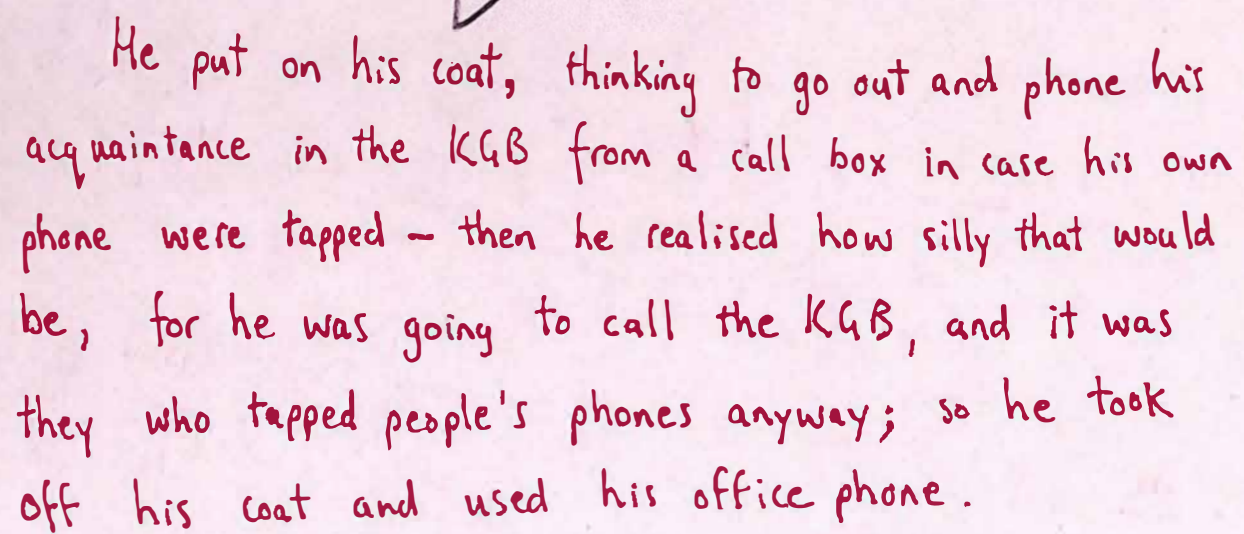 He put on his coat, thinking to go out and phone his
acquaintance in the KGB from a call box in case his own
phone were tapped – then he realised how silly that would
be, for he was going to call the KGB, and it was
they who tapped people's phones anyway; so he took
off his coat and used his office phone.